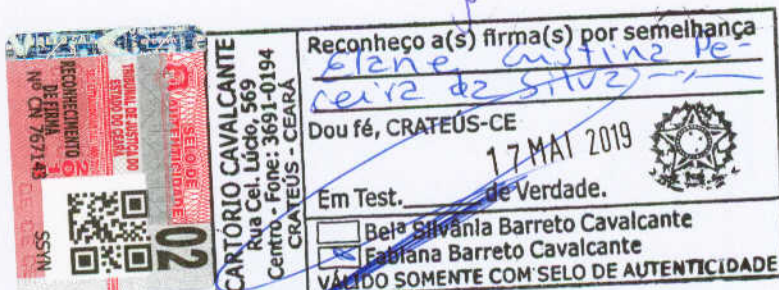 TRIBUNAL DE JUSTIÇA DO
ESTADO DO CEARÁ
RECONHECIMENTO
DE FIRMA
Nº CN 767143
SELO DE
AUTENTICIDADE
SSYN
02
CARTÓRIO CAVALCANTE
Rua Cel. Lúcio, 569
Centro - Fone: 3691-0194
CRATEÚS - CEARÁ
Reconheço a(s) firma(s) por semelhança
Elane Cristina Pe-
reira da Silva
Dou fé, CRATEÚS-CE
17 MAI 2019
Em Test.______de Verdade.
Belª Silvânia Barreto Cavalcante
Fabiana Barreto Cavalcante
VÁLIDO SOMENTE COM SELO DE AUTENTICIDADE